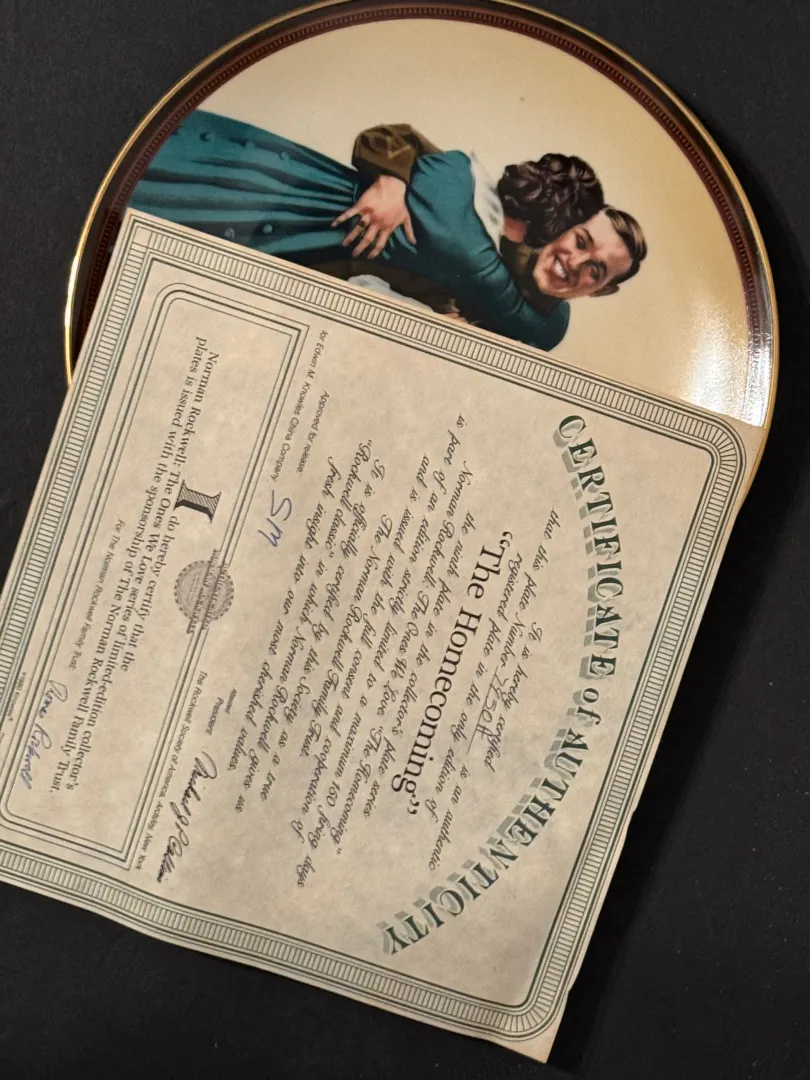 CERTIFICATE of AUTHENTICITY
It is hereby certified
that this plate Number
registered plate in the only edition of
is an authentic
"The Homecoming"
the ninth plate in the collector's plate series
Norman Rockwell: The Ones We Love. "The Homecoming"
is part of an edition strictly limited to a maximum 150 firing days
and is issued with the full consent and cooperation of
The Norman Rockwell Family Trust.
It is officially certified by this Society as a true
"Rockwell classic" in which Norman Rockwell gives us
fresh insight into our most cherished values.
Approved for release:
for Edwin M. Knowles China Company
SM
Attested:
President
The Rockwell Society of America, Ardsley, New York
I do hereby certify that the
Norman Rockwell: The Ones We Love series of limited-edition collector's
plates is issued with the sponsorship of The Norman Rockwell Family Trust.
For The Norman Rockwell Family Trust: